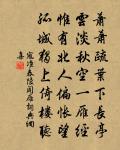 蕭蕭疏葉下長亭
雲淡秋空一雁經
惟有北人偏悵望
孤城獨上倚樓聽
寇準春陵聞雁